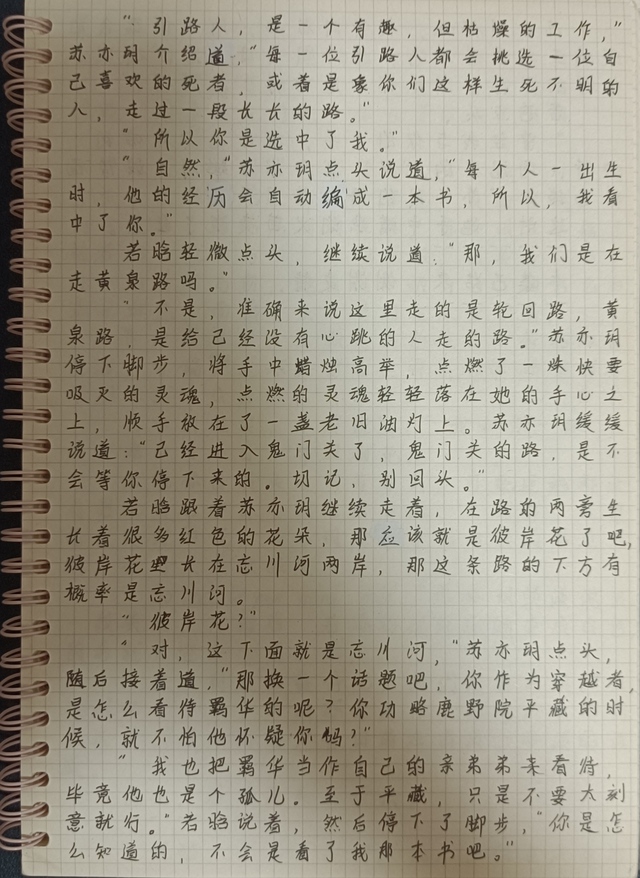 “引路人，是一个有趣，但枯燥的工作，”
苏亦玥介绍道，“每一位引路人都会挑选一位自
己喜欢的死者，或着是象你们这样生死不明的
人，走过一段长长的路。”
“所以你是选中了我。”
“自然，”苏亦玥点头说道，“每个人一出生
时，他的经历会自动编成一本书，所以，我看
中了你。”
若晗轻微点头，继续说道：“那，我们是在
走黄泉路吗。”
“不是，准确来说这里走的是轮回路，黄
泉路，是给已经没有心跳的人走的路。”苏亦玥
停下脚步，将手中蜡烛高举，点燃了一株快要
吸灭的灵魂，点燃的灵魂轻轻落在她的手心之
上，顺手放在了一盏老旧油灯上。苏亦玥缓缓
说道：“已经进入鬼门关了，鬼门关的路，是不
会等你停下来的。切记，别回头。”
若晗跟着苏亦玥继续走着，在路的两旁生
长着很多红色的花朵，那应该就是彼岸花了吧，
彼岸花长在忘川河两岸，那这条路的下方有
概率是忘川河。
“彼岸花？”
“对，这下面就是忘川河，”苏亦玥点头，
随后接着道，“那换一个话题吧，你作为穿越者，
是怎么看待羁华的呢？你功略鹿野院平藏的时
候，就不怕他怀疑你吗？”
“我也把羁华当作自己的亲弟弟来看待，
毕竟他也是个孤儿。至于平藏，只是不要太刻
意就行。”若晗说着，然后停下了脚步，“你是怎
么知道的，不会是看了我那本书吧。”